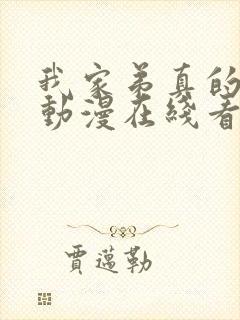 我家弟真的
動漫在綫看
賈邁勒